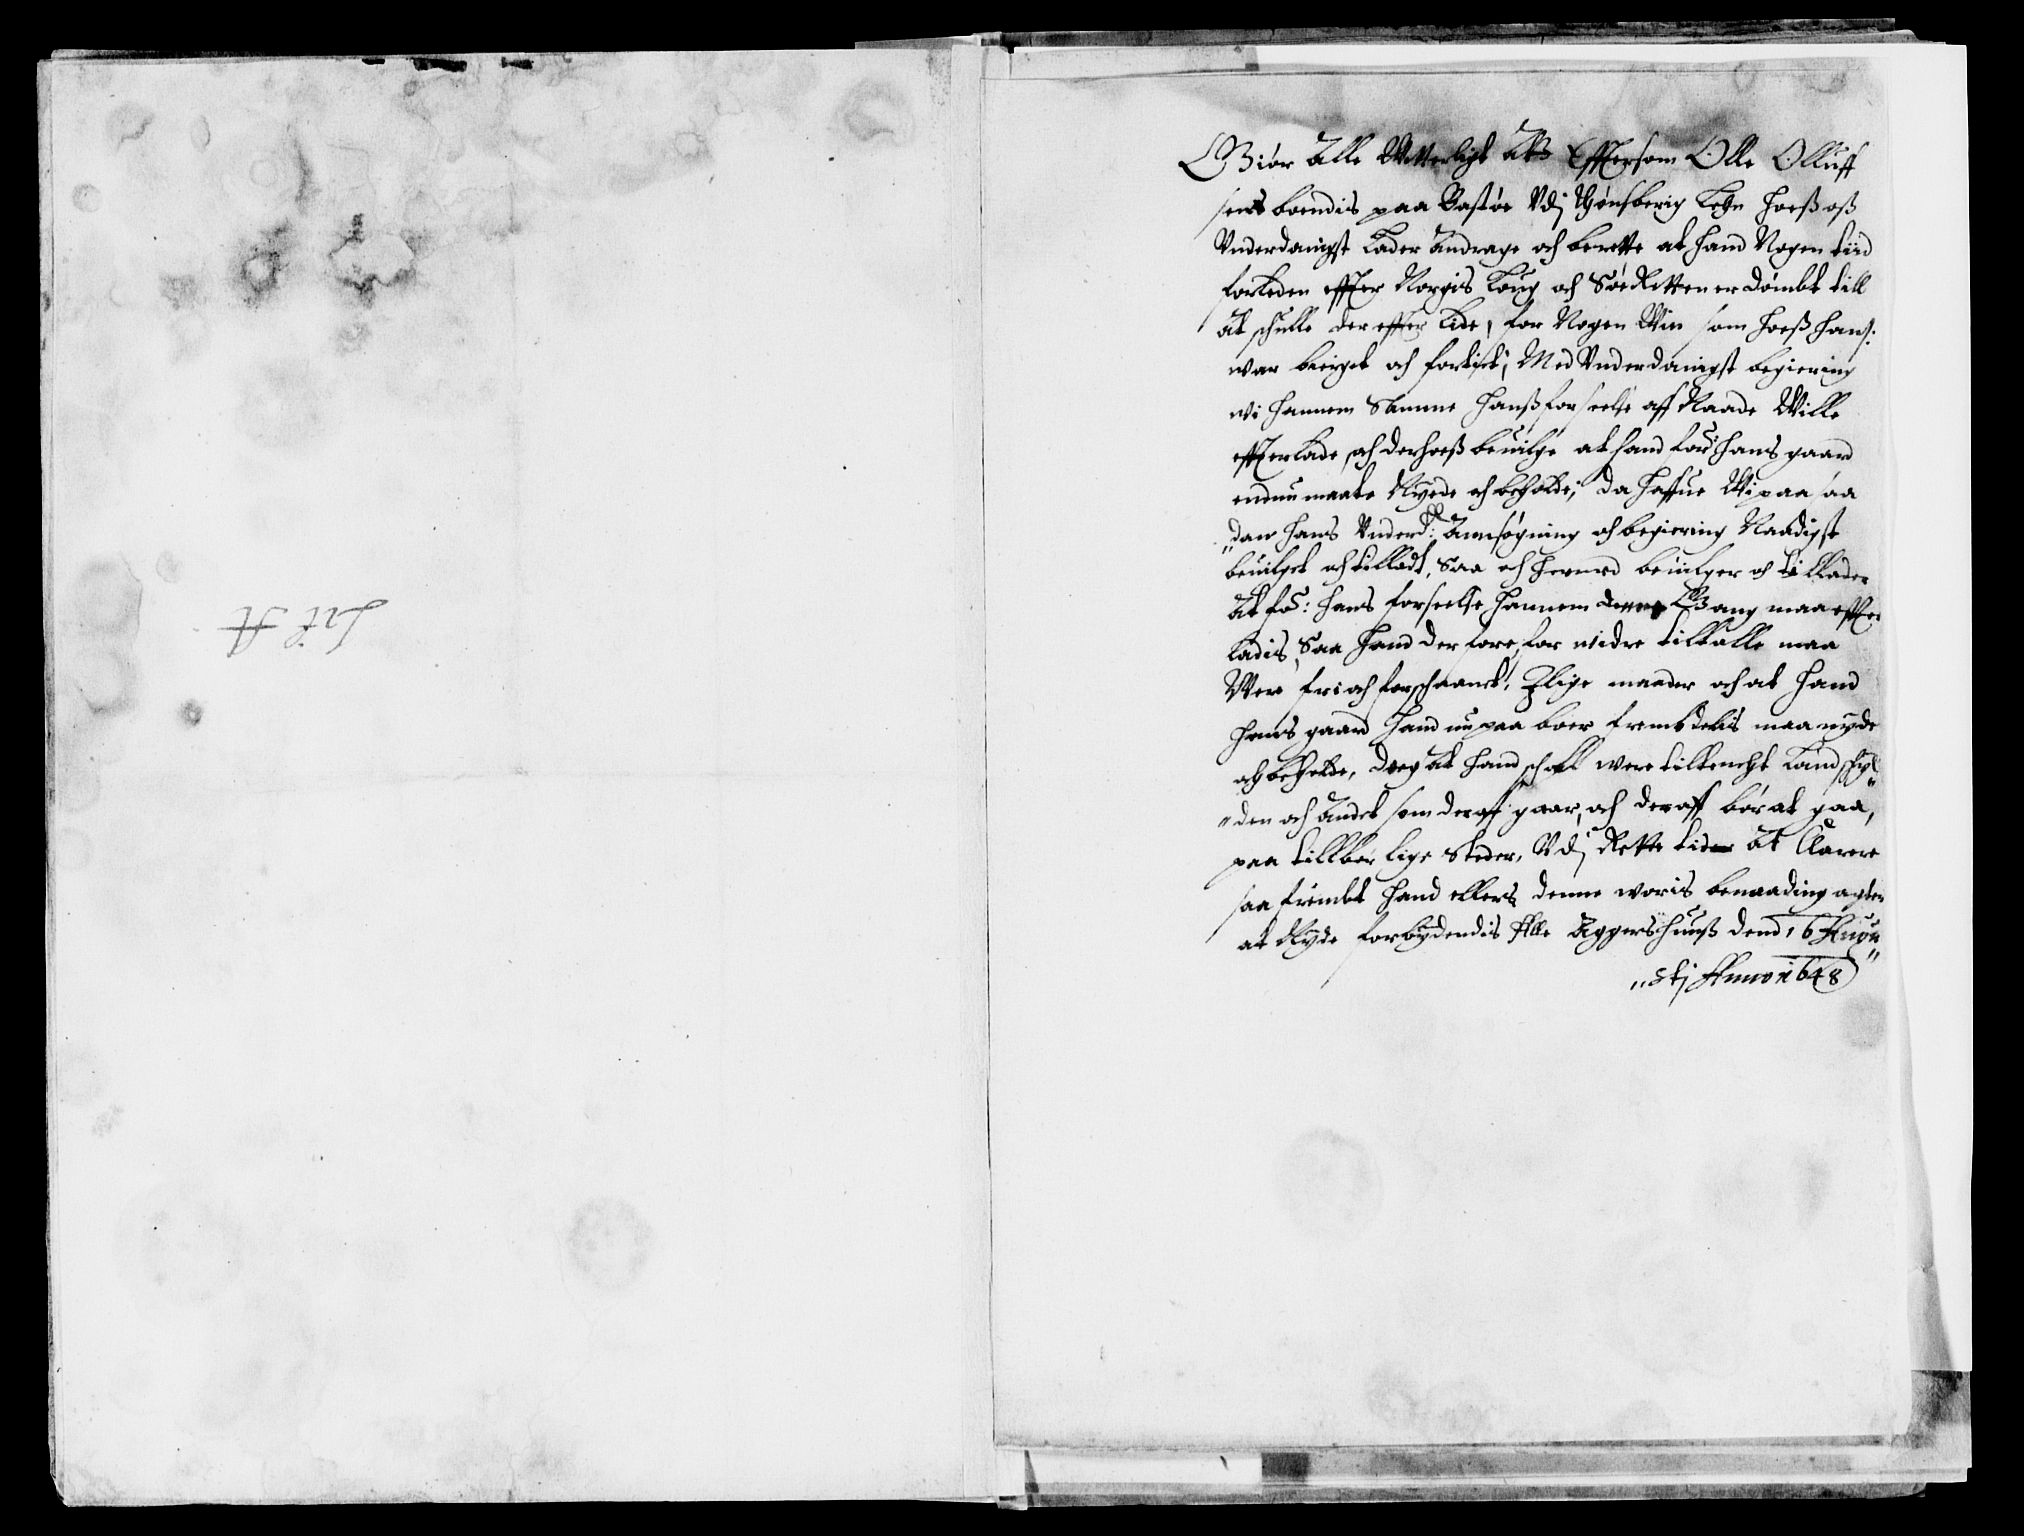 Lit A
Giör Alle Witterligt At Effttersom Olle Olluff
sens boendis paa Bastöe Vdj Thönsberig Lehn hoeß oß
Vnderdanigst Lader Andrage och berette at hand Nogen tiid
forleden effter Norgis Loug och Söe Retten er Dömbt till
At schulle der effter Lide, for Nogen Win som hoeß hans:
war bierget och fortiet; Med Vnderdanigst begiering
wi hannem Samme hanß forseelse aff Naade Wille
effterlade, och derhoeß beuilge at hand for: hans gaard
endnu maate Nyede och beholde; da haffue Wi paa saa
dan hans Vnderd: Ansögning och begiering Naadigst
beuilget och tilladt, Saa och hermed beuilger och tillader
At for: hans forseelse hannem denne Gang maa effter
ladis, Saa hand der fore, for widre tilltalle maa
Were fri och forschaanet; I lige maader och at hand
hans gaard hand nu paa boer frembdelis maa nyde
och beholde, dog At hand schall were tiltencht Landschyl
den och Andet som deraff gaar, och deraff bör at gaa,
paa tillbörlige Steder, Vdj Rette tider At Clarere
saa frembt hand ellers denne woris benaading agter
at Nyde forbydendis Alle Aggershuuß dend 16 Augu
stj Anno 1648